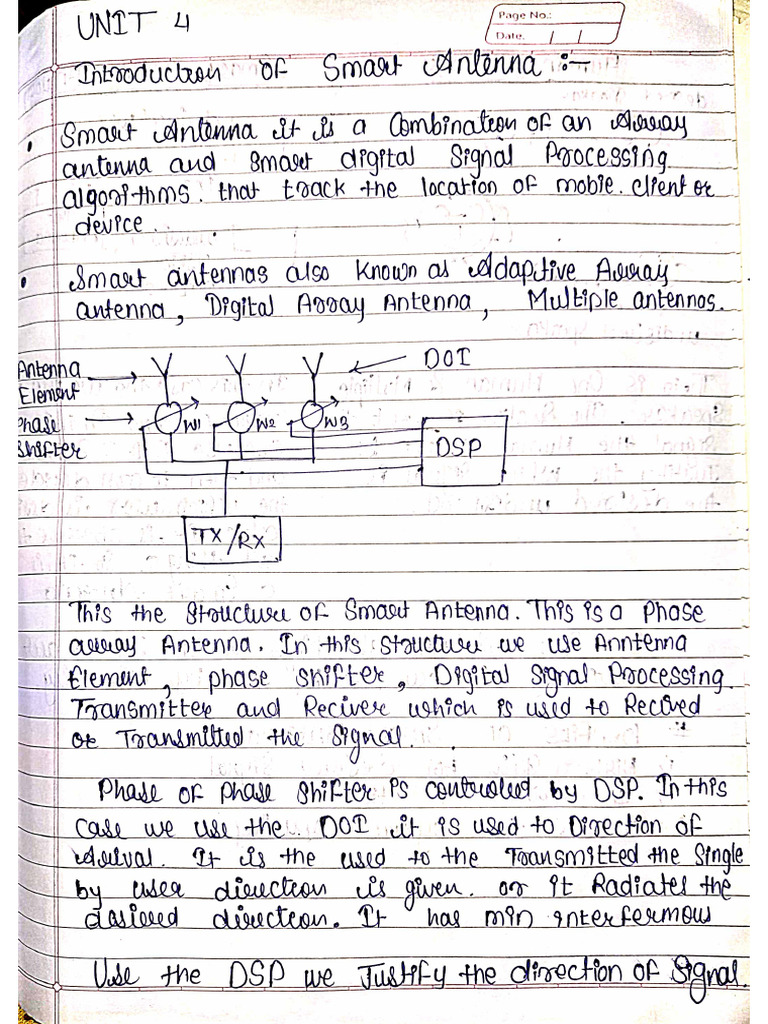 UNIT 4
Page No.:
Date. / /
Introduction of Smart Antenna :-
• Smart Antenna it is a Combination of an Array
antenna and smart digital Signal Processing
algorithms. that track the location of mobie. client or
device.
• Smart antennas also known as Adaptive Array
antenna, Digital Array Antenna, Multiple antennas.
Antenna
Element
DOI
Phase
Shifter
W1
W2
W3
DSP
TX/RX
This the structure of Smart Antenna. This is a Phase
array Antenna. In this structure we use Anntenna
Element, phase shifter, Digital Signal Processing.
Transmitter and Reciver which is used to Recived
or Transmitted the Signal.
Phase of Phase shifter is controlled by DSP. In this
case we use the DOI it is used to Direction of
Arival. It is the used to the Transmitted the Single
by user direction is given. or it Radiates the
desired direction. It has min interfermous
Use the DSP we Justify the direction of Signal.